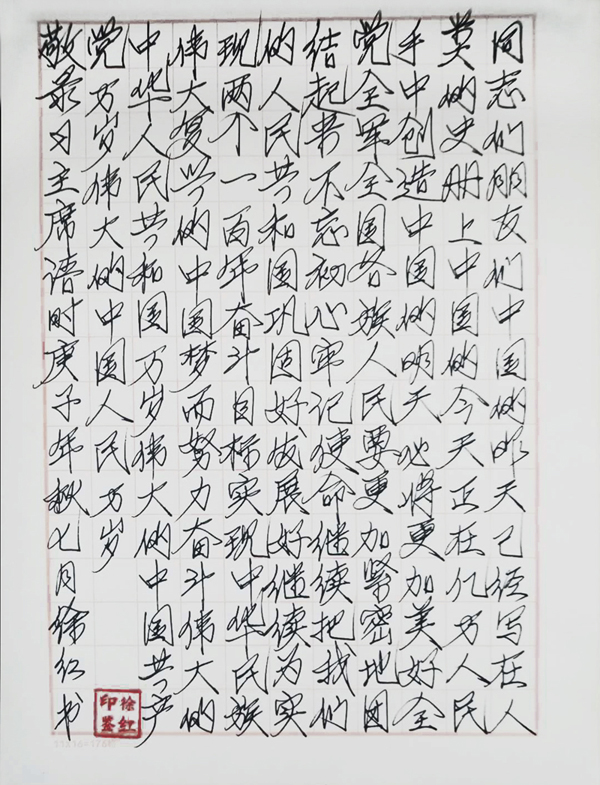 同志们朋友们中国的昨天已经写在人
类的史册上中国的今天正在亿万人民
手中创造中国的明天必将更加美好全
党全军全国各族人民要更加紧密地团
结起来不忘初心牢记使命继续把我们
的人民共和国巩固好发展好继续为实
现两个一百年奋斗目标实现中华民族
伟大复兴的中国梦而努力奋斗伟大的
中华人民共和国万岁伟大的中国共产
党万岁伟大的中国人民万岁
敬录习主席语时庚子年秋七月徐红书
徐红
印鉴